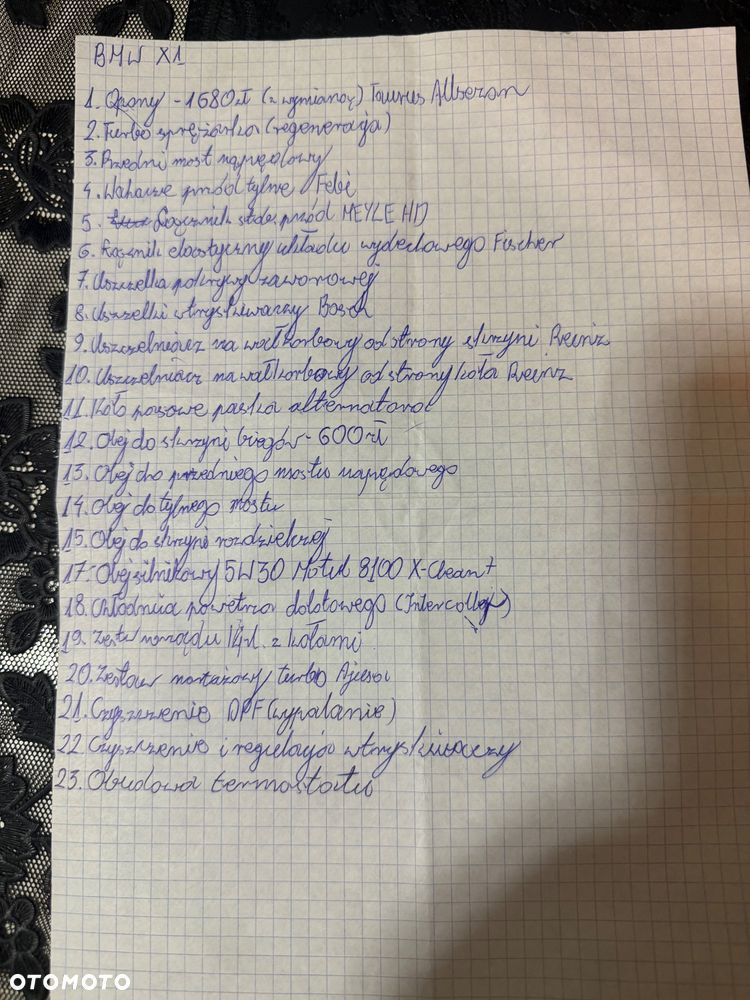 BMW X1
1. Opony - 1680zł (z wymianą) Taurus Allseson
2. Turbo sprężarka (regeneracja)
3. Przedni most napędowy
4. Wahacze przód tylne Febi
5. Łącznik stab. przód MEYLE HD
6. Łącznik elastyczny układu wydechowego Fischer
7. Uszczelka pokrywy zaworowej
8. Uszzelki wtryskiwaczy Bosch
9. Uszczelniacz na wał korbowy od strony skrzyni Reinz
10. Uszczelniacz na wał korbowy od strony koła Reinz
11. Koło pasowe paska alternatora
12. Olej do skrzyni biegów - 600zł
13. Olej do przedniego mostu napędowego
14. Olej do tylnego mostu
15. Olej do skrzyni rozdzielczej
17. Olej silnikowy 5W30 Motul 8100 X-Clean+
18. Chłodnica powietrza dolotowego
19. z kołami
20. Zestaw montażowy turbo Ajusa
21. Czyszczenie DPF (wypalanie)
22 Czyszczenie i regulacja wtryskiwaczy
23. Obudowa termostatu
OTOMOTO